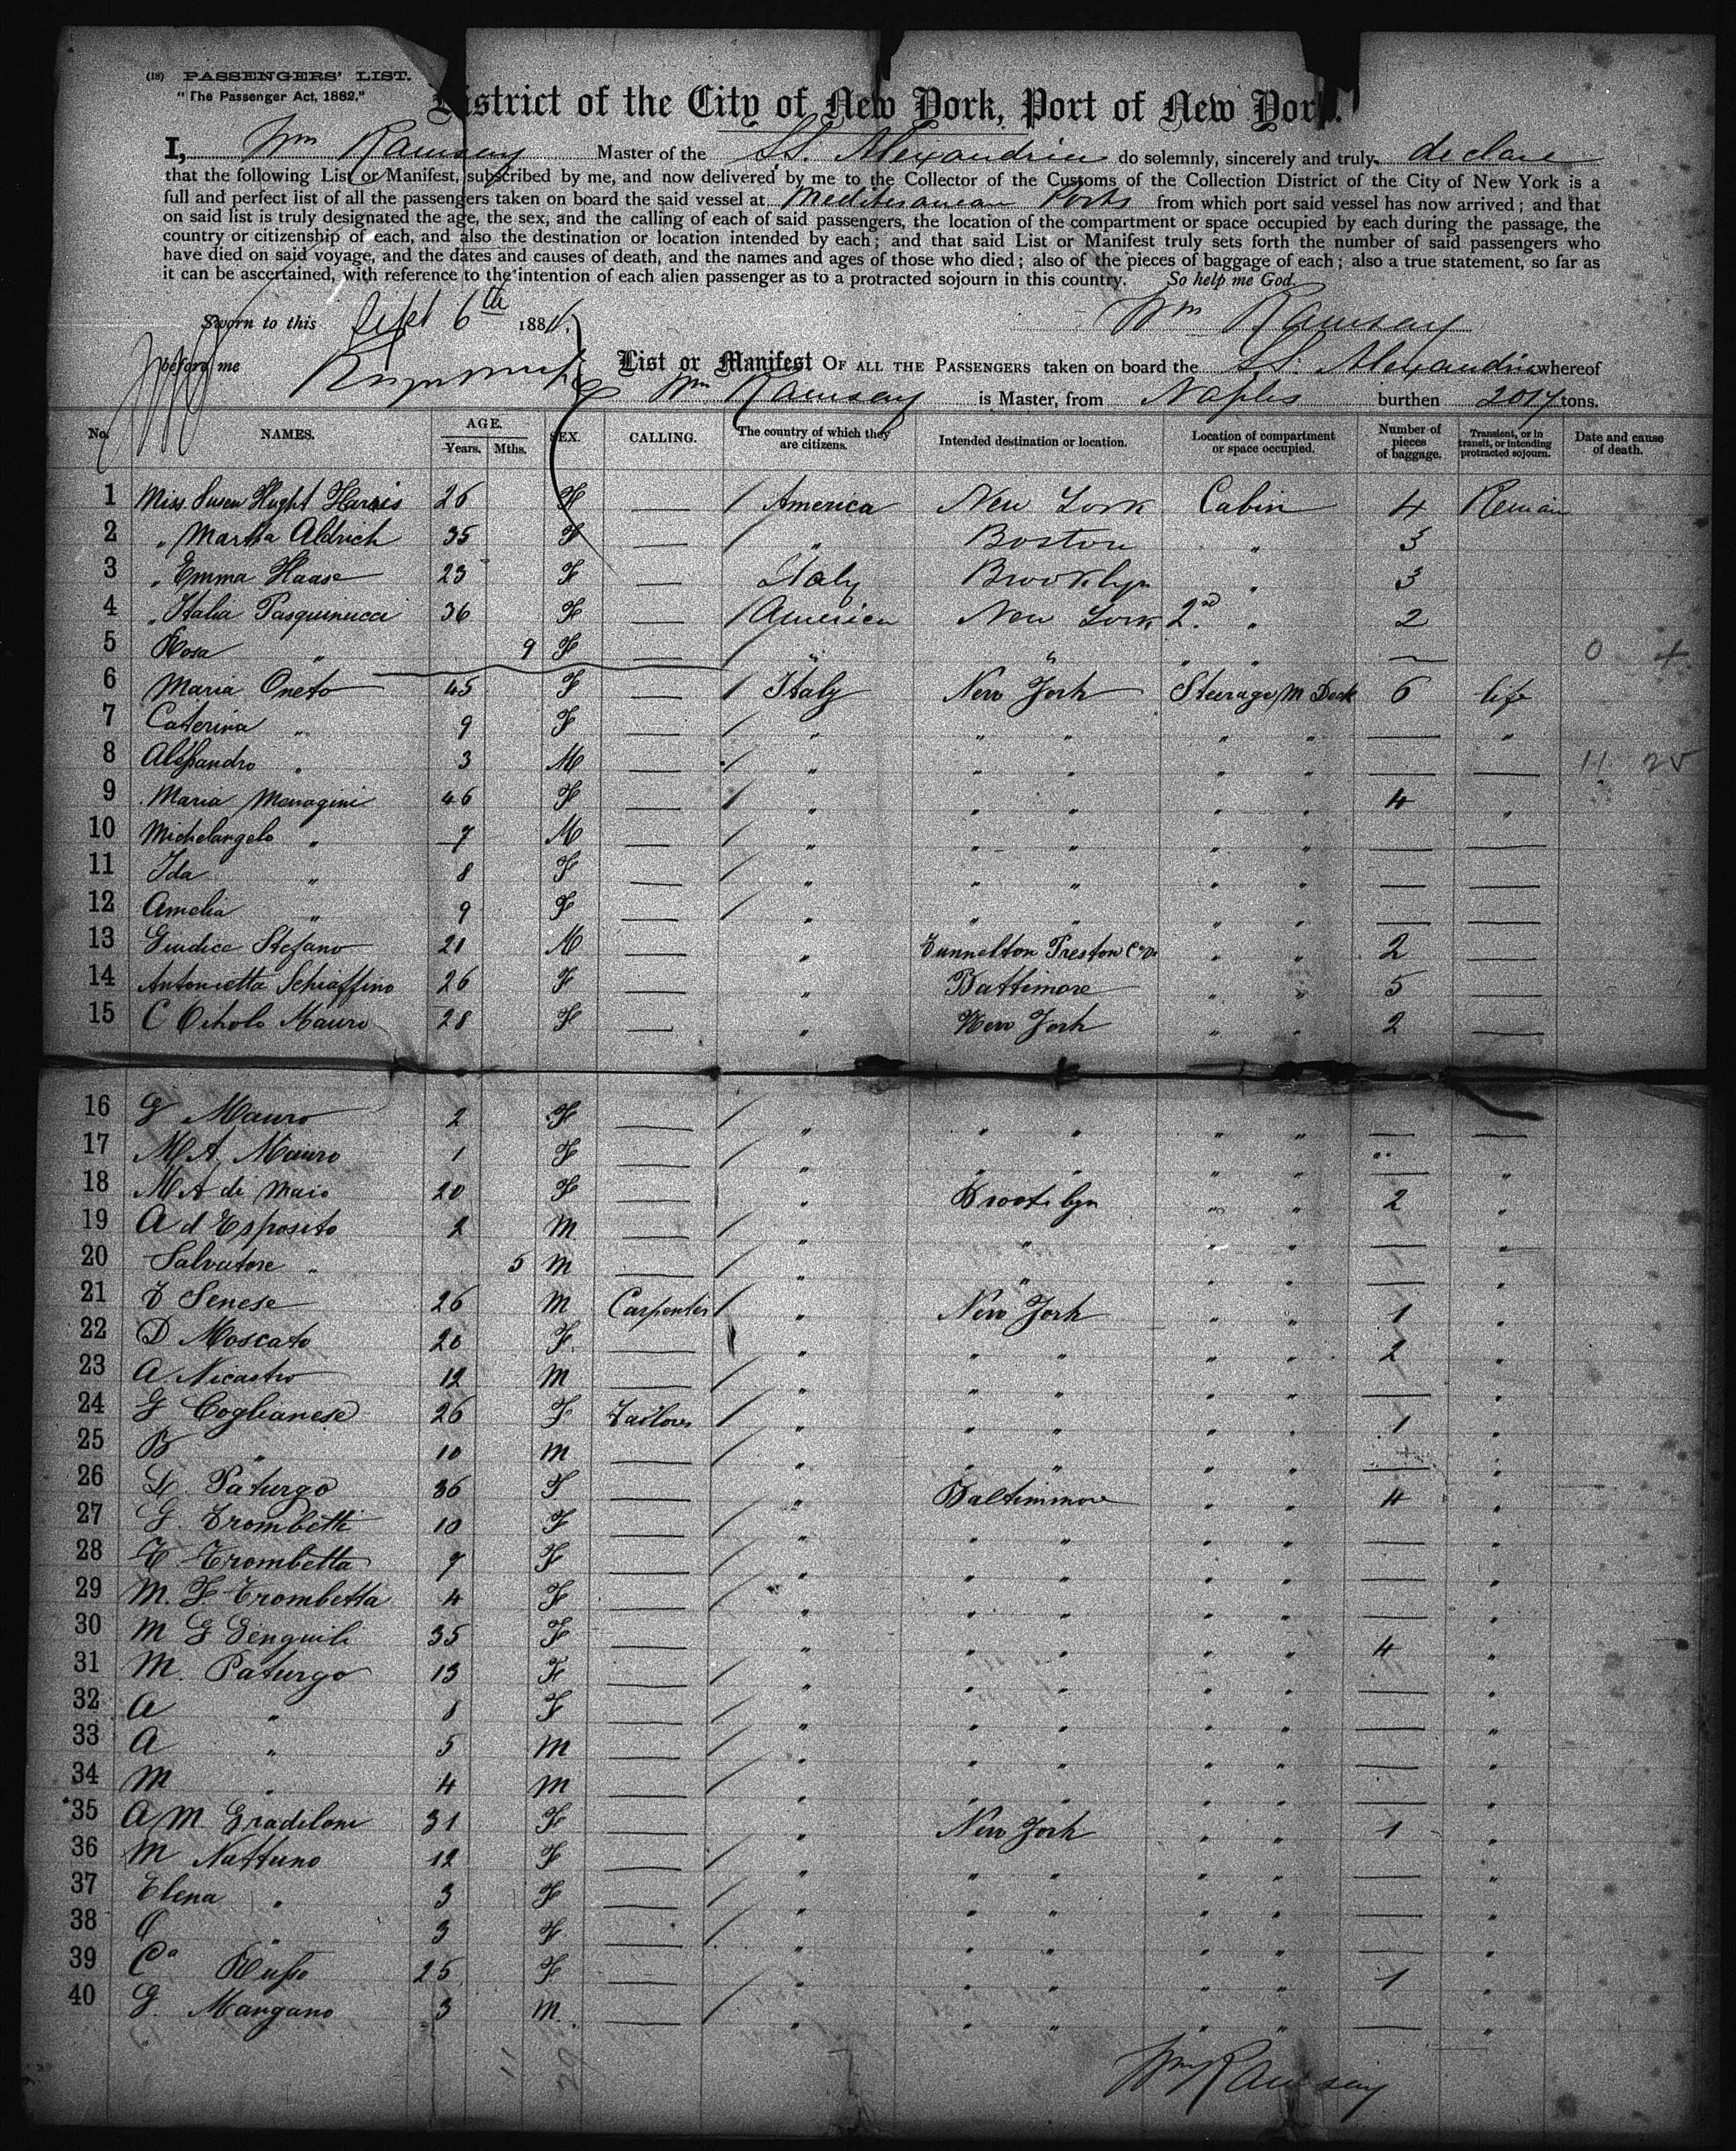 (18) PASSENGERS' LIST.
"The Passenger Act, 1882."
District of the City of New York, Port of New York.
I, Wm Ramsay Master of the SS. Alexandria do solemnly, sincerely and truly declare
that the following List or Manifest, subscribed by me, and now delivered by me to the Collector of the Customs of the Collection District of the City of New York is a
full and perfect list of all the passengers taken on board the said vessel at Mediteranean Ports from which port said vessel has now arrived; and that
on said list is truly designated the age, the sex, and the calling of each of said passengers, the location of the compartment or space occupied by each during the passage, the
country or citizenship of each, and also the destination or location intended by each; and that said List or Manifest truly sets forth the number of said passengers who
have died on said voyage, and the dates and causes of death, and the names and ages of those who died; also of the pieces of baggage of each; also a true statement, so far as
it can be ascertained, with reference to the intention of each alien passenger as to a protracted sojourn in this country. So help me God.
Sworn to this Sept 6th 188 Wm Ramsay
before me
List or Manifest OF ALL THE PASSENGERS taken on board the SS. Alexandria whereof
Wm Ramsay is Master, from Naples burthen 2017 tons.
No. NAMES. AGE. Years. Mths. SEX. CALLING. The country of which they are citizens. Intended destination or location. Location of compartment or space occupied. Number of pieces of baggage. Transient, or in transit, or intending protracted sojourn. Date and cause of death.
1 Miss Susen Hught Harris 26 F — / America New York Cabin 4 Remain
2 " Martha Aldrich 35 F — / " Boston " 3
3 " Emma Haase 23 F — Italy Brooklyn " 3
4 " Italia Pasquinucci 36 F — / America New York 2nd " 2
5 Rosa " 9 F — / " " " " — 0 4
6 Maria Oneto 45 F — / Italy New York Steerage M Deck 6 life
7 Caterina " 9 F — / " " " " " — "
8 Alessandro " 3 M — / " " " " " — — 11 25
9 Maria Menagini 46 F — / " " " " " 4 "
10 Michelangelo " 7 M — / " " " " " — —
11 Ida " 8 F — / " " " " " — —
12 Amelia " 9 F — / " " " " " — —
13 Giudice Stefano 21 M — " Tunnelton Preston " " 2 —
14 Antonietta Schiaffino 26 F — " Baltimore " " 5 —
15 C Mauro 28 F — " New York " " 2 —
16 G Mauro 2 F — / " " " " " — —
17 M A Mauro 1 F — / " " " " " — "
18 M A di Maio 20 F — " Brooklyn " " 2 "
19 A d Esposito 2 M — / " " " " — "
20 Salvatore " 5 M — / " " " " — "
21 F Senese 26 M Carpenter / " New York " " 1 "
22 D Moscato 20 F — / " " " " " 2 "
23 A. Nicastro 12 M — / " " " " " — "
24 G Coglianese 26 F Tailores / " " " " " 1 "
25 B " 10 M — / " " " " " — "
26 D. Paturgo 36 F — " Baltimmore " " 4 "
27 G. Trombetti 10 F — / " " " " " — "
28 T. Trombetta 7 F — / " " " " " — "
29 M. F Trombetta 4 F — / " " " " " — "
30 M G 35 F — " " " " " 4 "
31 M. Paturgo 13 F — / " " " " " — "
32 A " 8 F — / " " " " " — "
33 A " 5 M — / " " " " " — "
34 M " 4 M — / " " " " " — "
35 A M. Gradiloni 31 F — " New York " " 1 "
36 M Nattuno 12 F — / " " " " " — "
37 Elena " 3 F — / " " " " " — "
38 C " 3 F — / " " " " " — "
39 Ca Russo 25 F — / " " " " " 1 "
40 G. Mangano 3 M. — / " " " " " — "
Wm Ramsay